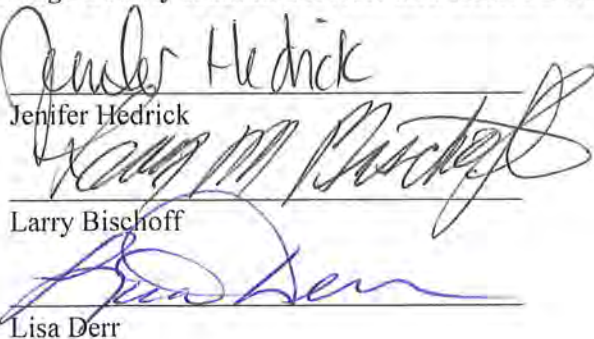 Jenifer Hedrick
Jenifer Hedrick
Larry M Bischoff
Larry Bischoff
Lisa Derr
Lisa Derr